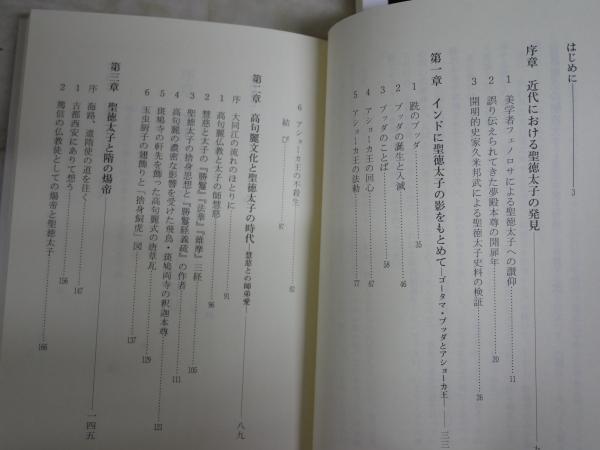 はじめに 3
序章 近代における聖徳太子の発見 九
1 美学者フェノロサによる聖徳太子への讃仰 11
2 誤り伝えられてきた夢殿本尊の開扉年 20
3 開明的史家久米邦武による聖徳太子史料の検証 26
第一章 インドに聖徳太子の影をもとめて―ゴータマ・ブッダとアショーカ王― 三三
1 跣のブッダ 35
2 ブッダの誕生と入滅 46
3 ブッダのことば 58
4 アショーカ王の回心 67
5 アショーカ王の法勅 77
6 アショーカ王の不殺生 82
結び 87
第二章 高句麗文化と聖徳太子の時代―慧慈との師弟愛― 八九
序 大同江の流れのほとりに
1 高句麗仏教と太子の師慧慈 91
2 慧慈と太子の『勝鬘』『法華』『維摩』三経 96
3 聖徳太子の捨身思想と『勝鬘経義疏』の作者 105
4 高句麗の濃密な影響を受けた飛鳥・斑鳩両寺の釈迦本尊 111
5 斑鳩寺の軒先を飾った高句麗式の唐草瓦 121
6 玉虫厨子の翅飾りと「捨身飼虎」図 129
137
第三章 聖徳太子と隋の煬帝 一四五
序 海路、遣隋使の道を往く 147
1 古都西安にありて想う 156
2 篤信の仏教徒としての煬帝と聖徳太子 166